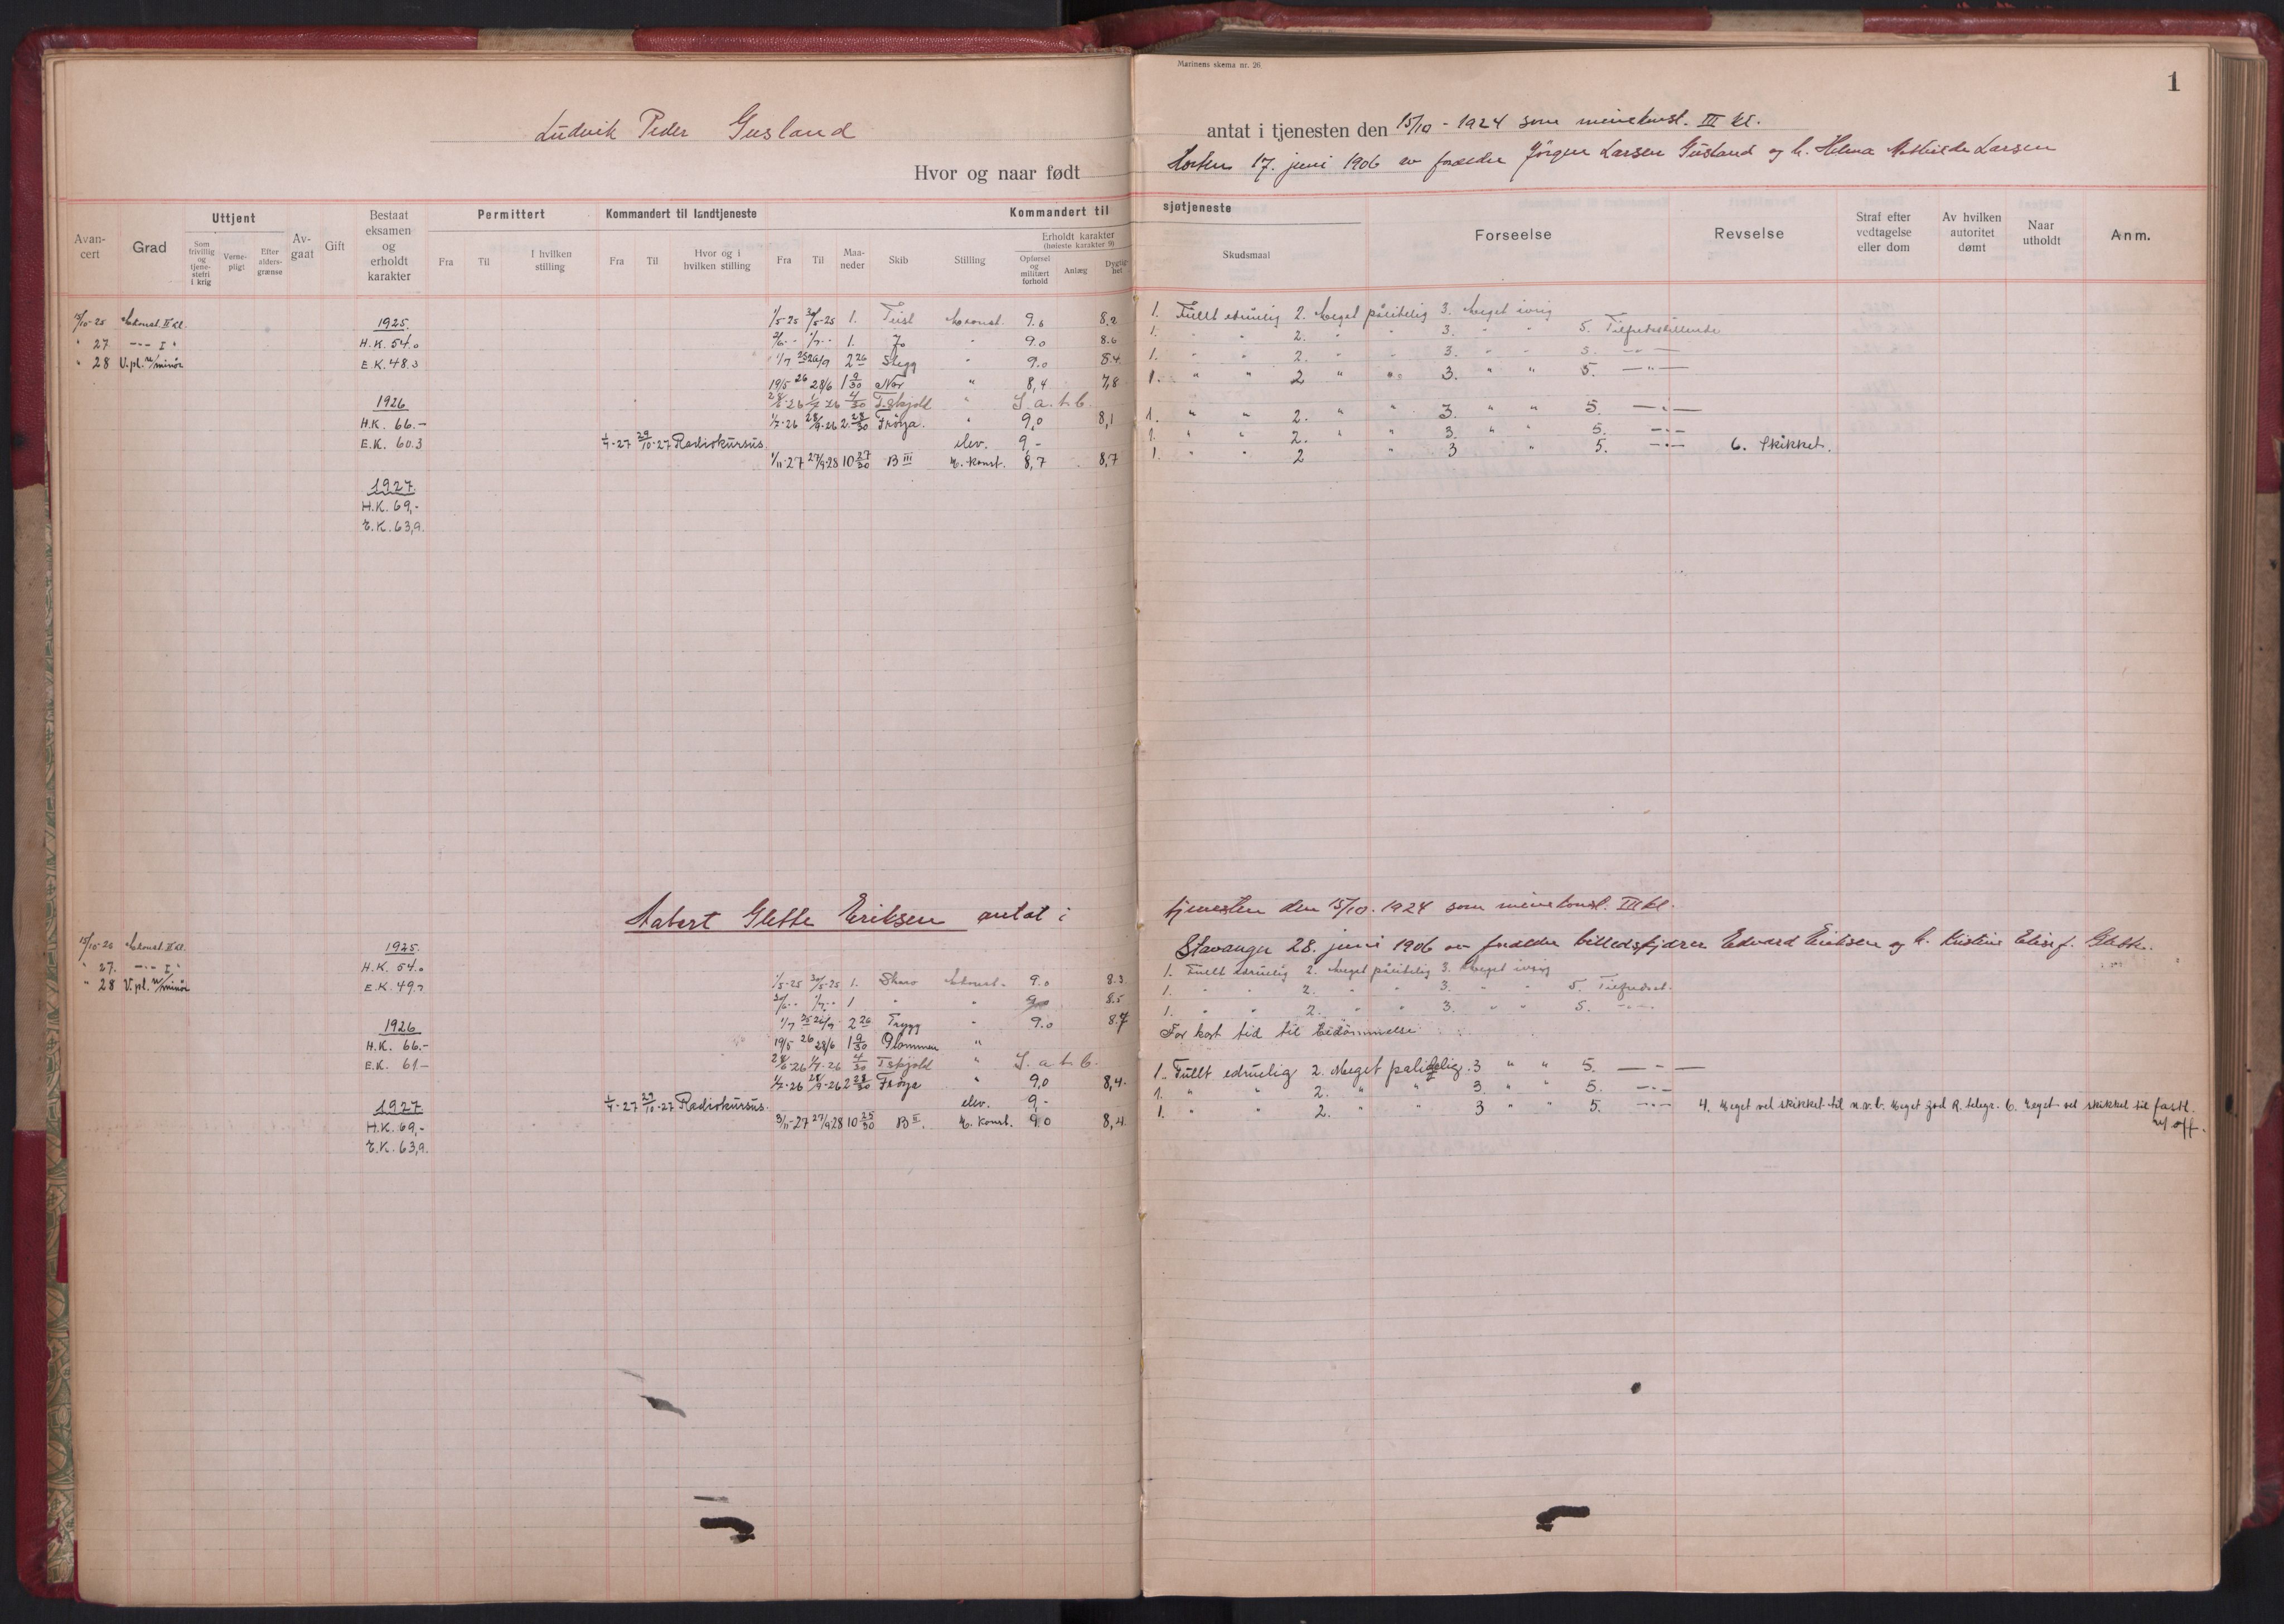 Marinens skema nr. 26
1
Ludvik Peder Gusland antat i tjenesten den 15/10 - 1924 som minekonst. III kl.
Hvor og naar født Horten 17. juni 1906 av forældre Jörgen Larsen Gusland og h. Helena Mathilde Larsen
Avancert
Grad
Uttjent
Som frivillig og tjenestefri i krig
Vernepligt
Efter aldersgrænse
Avgaat
Gift
Bestaat eksamen og erholdt karakter
Permittert
Fra
Til
I hvilken stilling
Kommandert til landtjeneste
Fra
Til
Hvor og i hvilken stilling
Kommandert til sjøtjeneste
Fra
Til
Maaneder
Skib
Stilling
Erholdt karakter (høieste karakter 9)
Opførsel og militært forhold
Anlæg
Dygtighet
Skudsmaal
Forseelse
Revselse
Straf efter vedtagelse eller dom
Av hvilken autoritet dømt
Naar utholdt
Anm.
15/10-25 M.konst. II kl. 1925. 1/5-25 30/5-25 1. Teist M.konst. 9.6 8.2 1. Fullt edruelig 2. Meget pålitelig 3. Meget ivrig
" 27 -"- I " H.K. 54.0 2/6-- 1/7-- 1. Jo " 9.0 8.6 1. " " 2. " " 3. " " 5. Tilfredsstillende
" 28 V.pl. u/minör E.K. 48.3 1/7 25 26/9 2 26 Skegg " 9.0 8.4. 1. " " 2. " " 3. " " 5. -"-
19/5 26 28/6 1 9/30 Nor " 8,4 7,8 1. " " 2 " " 3. " " 5. -"-
1926 28/6-26 1/7 26 4/30 T.skjold " I. a. t. b.
H.K. 66.- 1/7-26 28/9-26 2 28/30 Fröya. " 9,0 8,1 1. " " 2. " " 3. " " 5. -"-
E.K. 60.3 1/7-27 29/10-27 Radiokursus. elev. 9,- 1. " " 2. " " 3. " " 5. -"-
1/11-27 27/9-28 10 27/30 B III M. konst. 8,7 8,7 1. " " 2 " 3 " 5. -"- 6. Skikket.
1927.
H.K. 69,-
E.K. 63,9.
Aabert Glette Eriksen antat i tjenesten den 15/10. 1924 som minekonst. III kl.
Stavanger 28. juni 1906 av forældre billedskjærer Edvard Eriksen og h. Kristine Elise f. Glette.
15/10-25 M.konst. II kl. 1925.
1. Fullt edruelig 2. Meget pålitelig 3. Meget ivrig
" 27. -"- I " H.K. 54.0
" 28 V.pl. u/minör E.K. 49.7 1/5-25 30/5-25 1. Skarv M.konst. 9.0 8.3 1. " " 2. " " 3. " " 5. Tilfredsst.
2/6-- 1/7-- 1 " " 9.0 8.5 1. " " 2. " " 3. " " 5. -"-
1926 1/7 25 26/9 2 26 Trygg " 9.0 8.7 For kort tid til bedömmelse
H.K. 66.- 19/5 26 28/6 1 9/30 Glommen "
E.K. 61- 28/6-26 1/7-26 4/30 T.skjold " I. a. t. b. 1. Fullt edruelig 2. Meget palidelig. 3 " " 5. -"-
1/7-26 28/9-26 2 28/30 Fröya " 9,0 8,4. 1. " " 2. " " 3. " " 5. -"-
1927 1/7-27 29/10-27 Radiokursus. elev. 9,- 1. " " 2. " " 3 " " 5. -"- 4. Meget vel skikket til u.v.b. Meget god R. telegr. 6. Meget vel skikket til fastl.
u/off.
H.K. 69,- 3/11-27 27/9 28 10 25/30 B II. M. konst. 9.0 8,4.
E.K. 63,9.